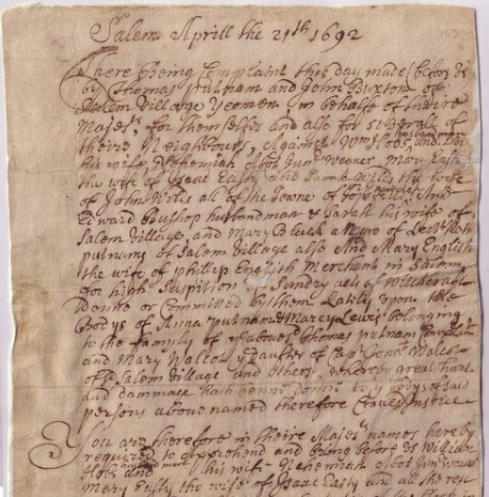 Salem Aprill the 21th 1692
There Being Complaint this day made (before us
by Thomas Putnam and John Buxton of
Salem Village Yeomen in behalfe of theire
Majests, for themselfes and also for severall of
theire Neighbours, Against Wm Hobs husbandman and
his wife, Nehemiah Abot Junr Weaver, Mary Easty
the wife of Isaac Easty and Sarah Wilds the wife
of John Wilds all of the Towne of
Edward Bushop husbandman & Sarah his wife of
Salem Village, and Mary Black a Negro of
putnams of Salem village also And Mary English
the wife of phillip English Merchant in Salem
for high Suspition of Sundry acts of Witchcraft
donne or Committed by them Lately upon the
Bodys of Anna putnam & Marcy Lewis belonging
to the family of Thomas putnam
and Mary Walcot Daughter of Capt Walcot
of Salem Village and others, whereby great hurt
and dammage hath benne donne to ye bodys of said
persons above named therefore Craved Justice
You are therefore in theire Majests names hereby
required to Apprehend and bring before us William
Hobs husbandman and his wife Nehemiah Abot Junr Weaver
Mary Easty the wife of Isaac Easty and all the rest